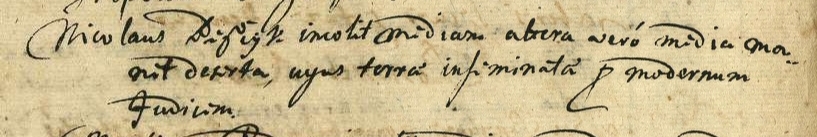 Nicolaus incolit mediam altera verò media ma-
net deserta, cuius terrã inseminatã p modernum
Judicem.